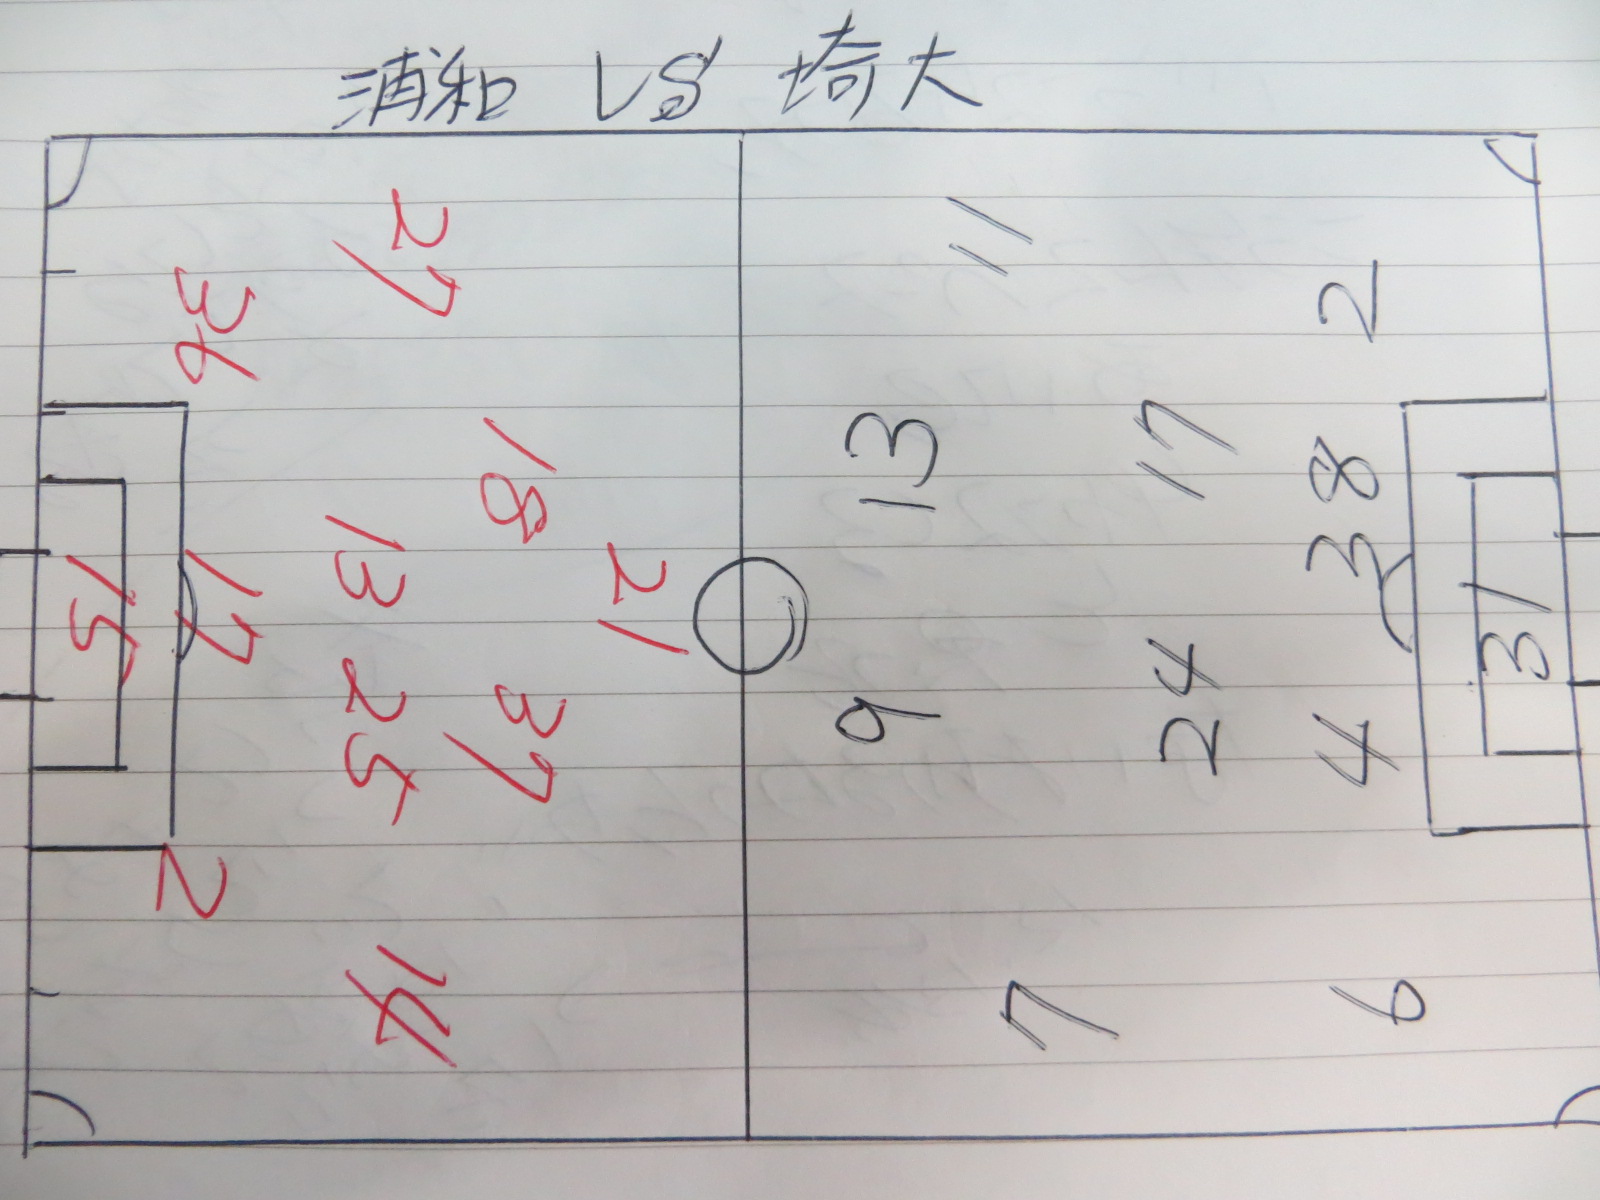 浦和 VS 埼大
27
36
18
13
21
17
15
25
37
2
14
11
2
13
17
38
31
24
9
4
7
6